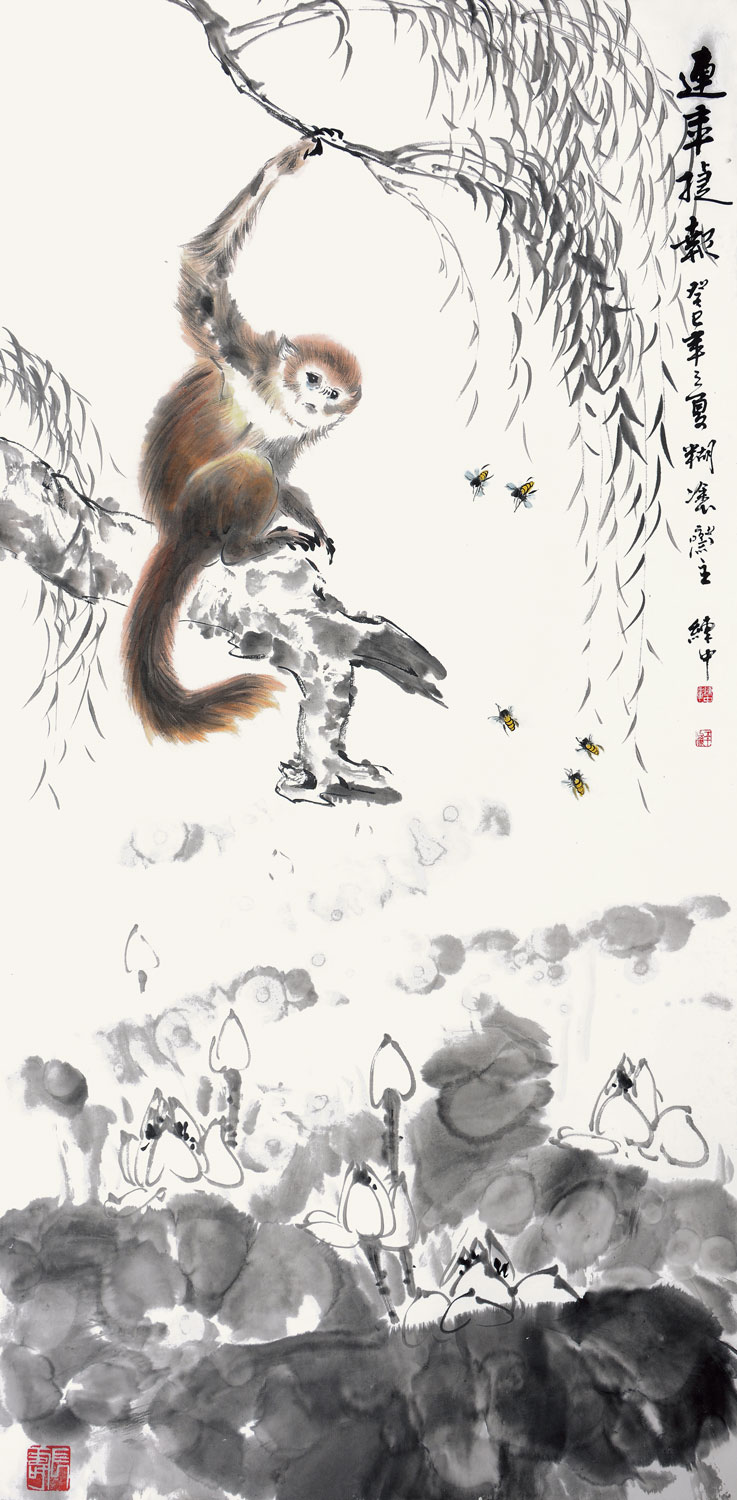 連年捷報
癸巳年之夏 糊塗齋主
長壽